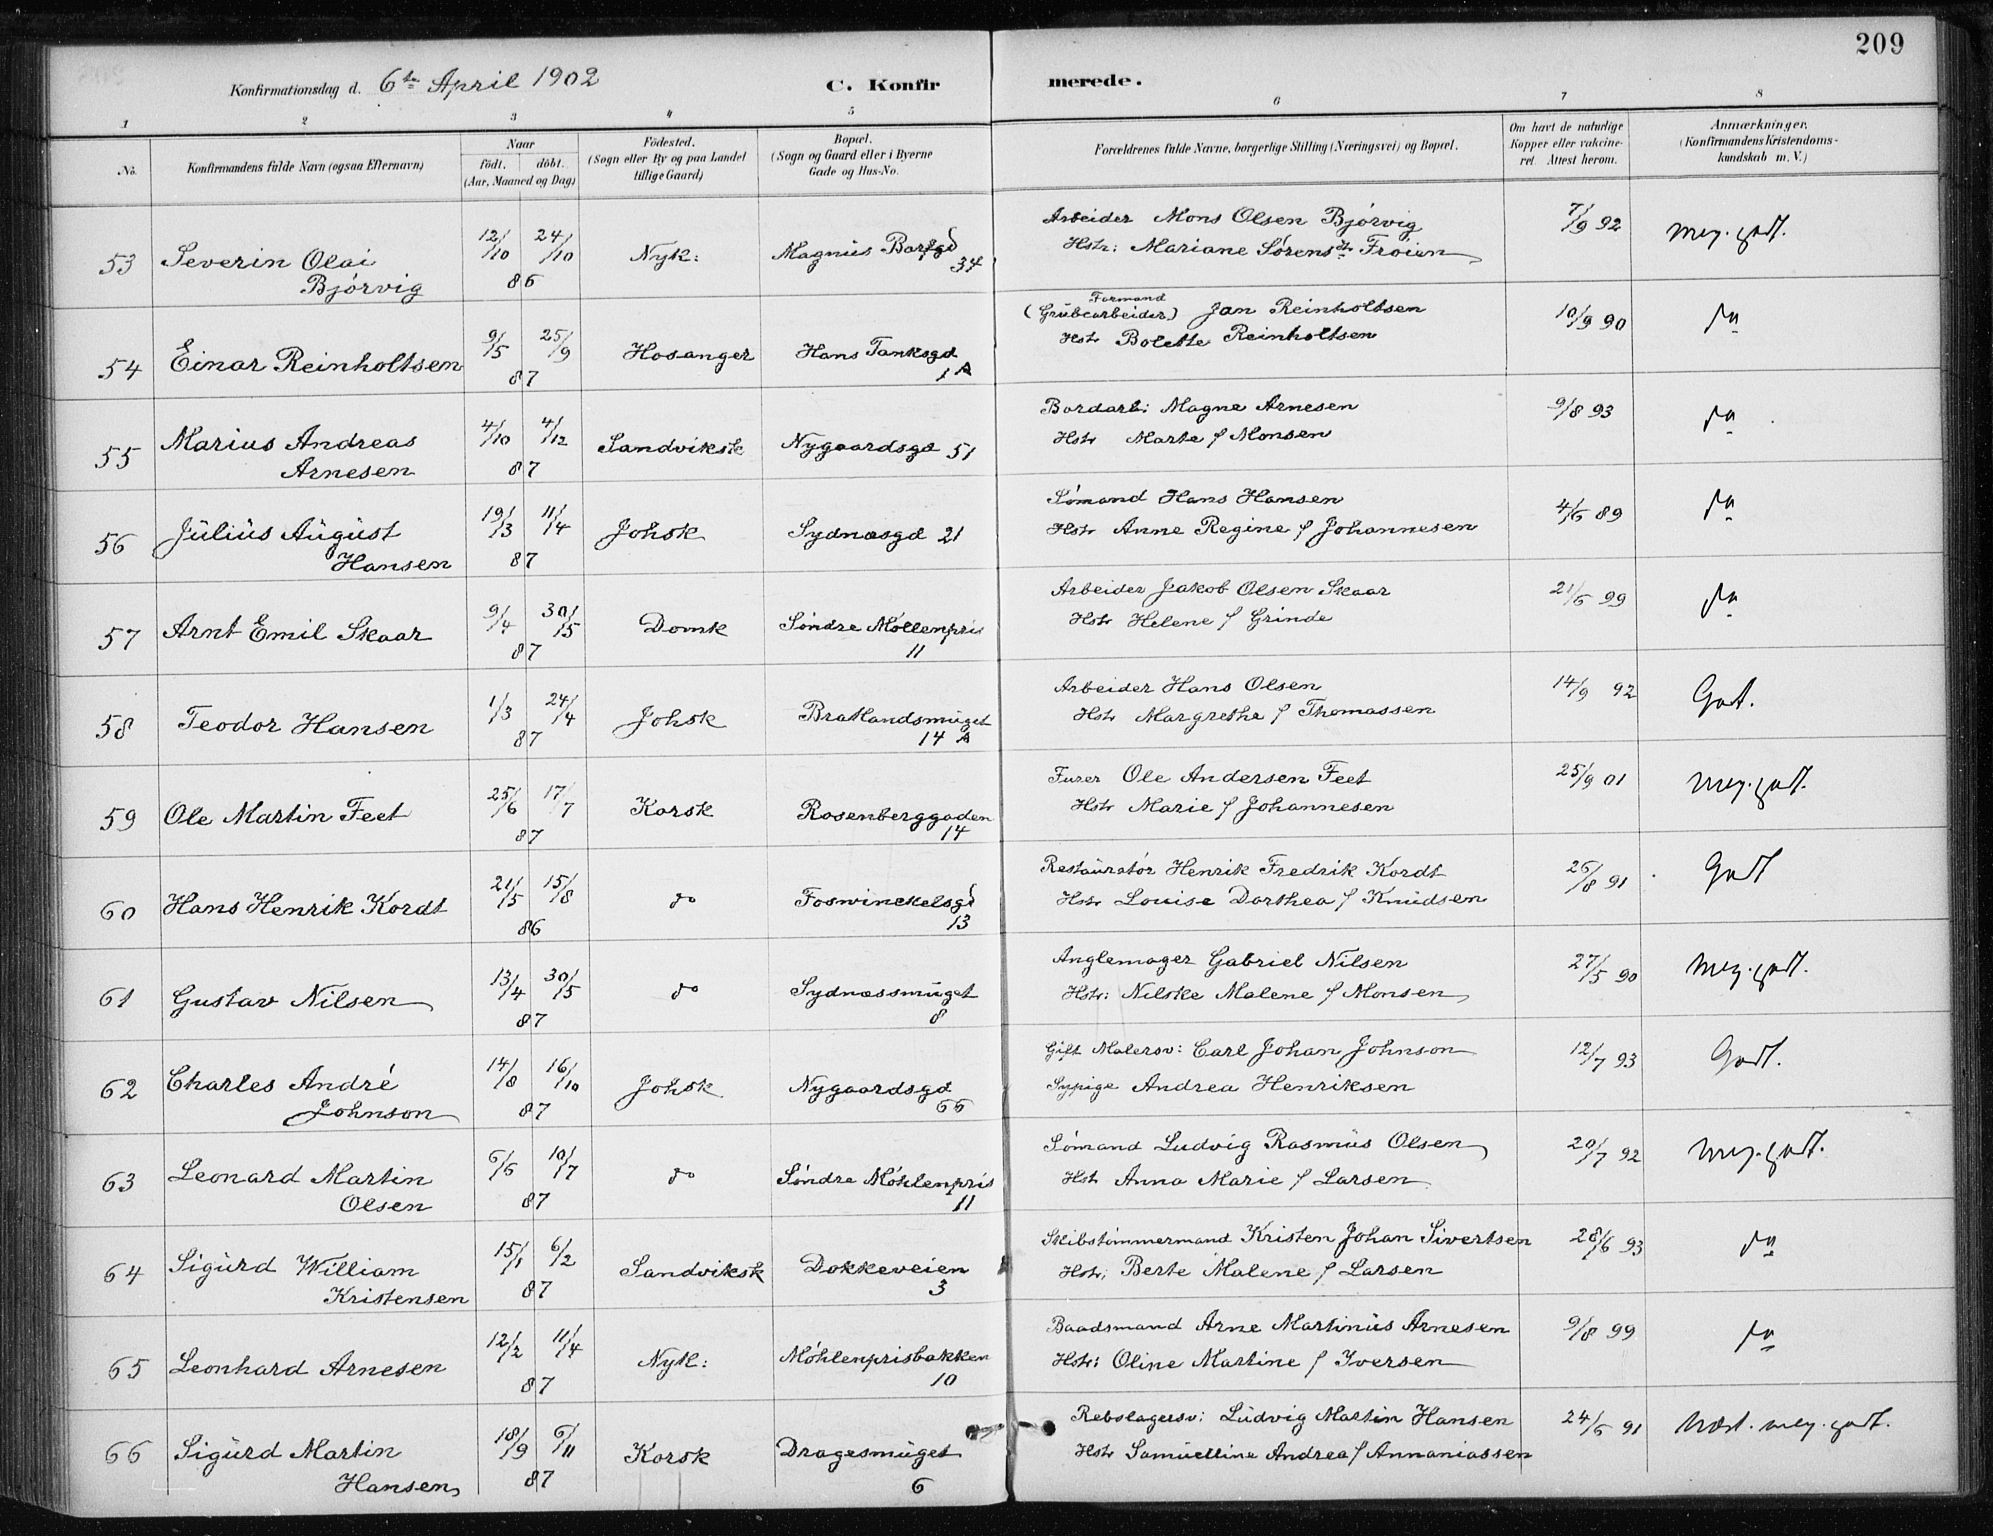 209
Konfirmationsdag d. 6te April 1902 C. Konfirmerede.
1 2 3 4 5 6 7 8
No. Konfirmandens fulde Navn (ogsaa Efternavn) Naar født. døbt. (Aar, Maaned og Dag) Fødested. (Sogn eller By og paa Landet tillige Gaard) Bopæl. (Sogn og Gaard eller i Byerne Gade og Hus-No. Forældrenes fulde Navne, borgerlige Stilling (Næringsvei) og Bopæl. Om havt de naturlige Kopper eller vakcineret. Attest herom. Anmærkninger. (Konfirmandens Kristendomskundskab m. V.)
53 Severin Olai Bjørvig 12/10 24/10 86 Nyk: Magnus Barfgd 34 Arbeider Mons Olsen Bjørvig 7/9 92 meg. godt.
Hstr: Mariane Sørensdtr Frøien
54 Einar Reinholtsen 9/5 25/9 87 Hosanger Hans Tanksgd 1 A (Formand Grubearbeider) Jan Reinholtsen 10/9 90 do
Hstr Bolette Reinholtsen
55 Marius Andreas Arnesen 4/10 4/12 87 Sandviksk Nygaardsgd 51 Bordarb: Magne Arnesen 9/8 93 do
Hstr Marte f Monsen
56 Julius August Hansen 19/3 11/4 87 Johsk Sydnæsgd 21 Sømand Hans Hansen 4/6 89 do
Hstr Anne Regine f Johannesen
57 Arnt Emil Skaar 9/4 30/5 87 Domk Søndre Møllenpris 11 Arbeider Jakob Olsen Skaar 21/6 99 do
Hstr Helene f Grinde
58 Teodor Hansen 1/3 24/4 87 Johsk Bratlandsmuget 14 A Arbeider Hans Olsen 14/9 92 Godt.
Hstr Margrethe f Thomassen
59 Ole Martin Feet 25/6 17/7 87 Korsk Rosenberggaden 14 Furer Ole Andersen Feet 25/9 01 meg. godt.
Hstr Marie f Johannesen
60 Hans Henrik Kordt 21/5 15/8 86 do Foswinckelsgd 13 Restauratør Henrik Fredrik Kordt 26/8 91 Godt
Hstr Louise Dorthea f Knudsen
61 Gustav Nilsen 13/4 30/5 87 do Sydnæssmuget 8 Anglemager Gabriel Nilsen 27/5 90 meg. godt.
Hstr: Nilske Malene f Monsen
62 Charles André Johnson 14/8 16/10 87 Johsk Nygaardsgd 66 Gift Malersv: Carl Johan Johnson 12/7 93 Godt.
Sypige Andrea Henriksen
63 Leonard Martin Olsen 6/6 10/7 87 do Søndre Møhlenpris 11 Sømand Ludvig Rasmus Olsen 20/7 92 meg. godt.
Hstr Anna Marie f Larsen
64 Sigurd William Kristensen 15/1 6/2 87 Sandviksk Dokkeveien 3 Skibstømmermand Kristen Johan Sivertsen 28/6 93 do
Hstr; Berte Malene f Larsen
65 Leonhard Arnesen 12/2 11/4 87 Nyk: Møhlenprisbakken 10 Baadsmand Arne Martinus Arnesen 9/8 99 do
Hstr: Oline Martine f Iversen
66 Sigurd Martin Hansen 18/9 6/11 87 Korsk Dragesmuget 6 Rebslagersv: Ludvig Martin Hansen 24/6 91 Næst. meg. godt.
Hstr Samuelline Andrea f Annaniassen